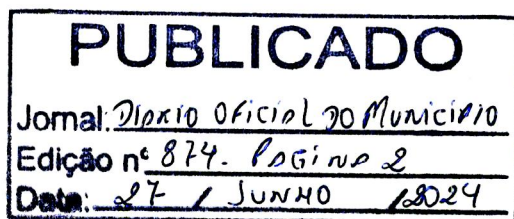 PUBLICADO
Jornal: Diario Oficial do Municipio
Edição nº 874. Pagina 2
Data: 27 / JUNHO /2024